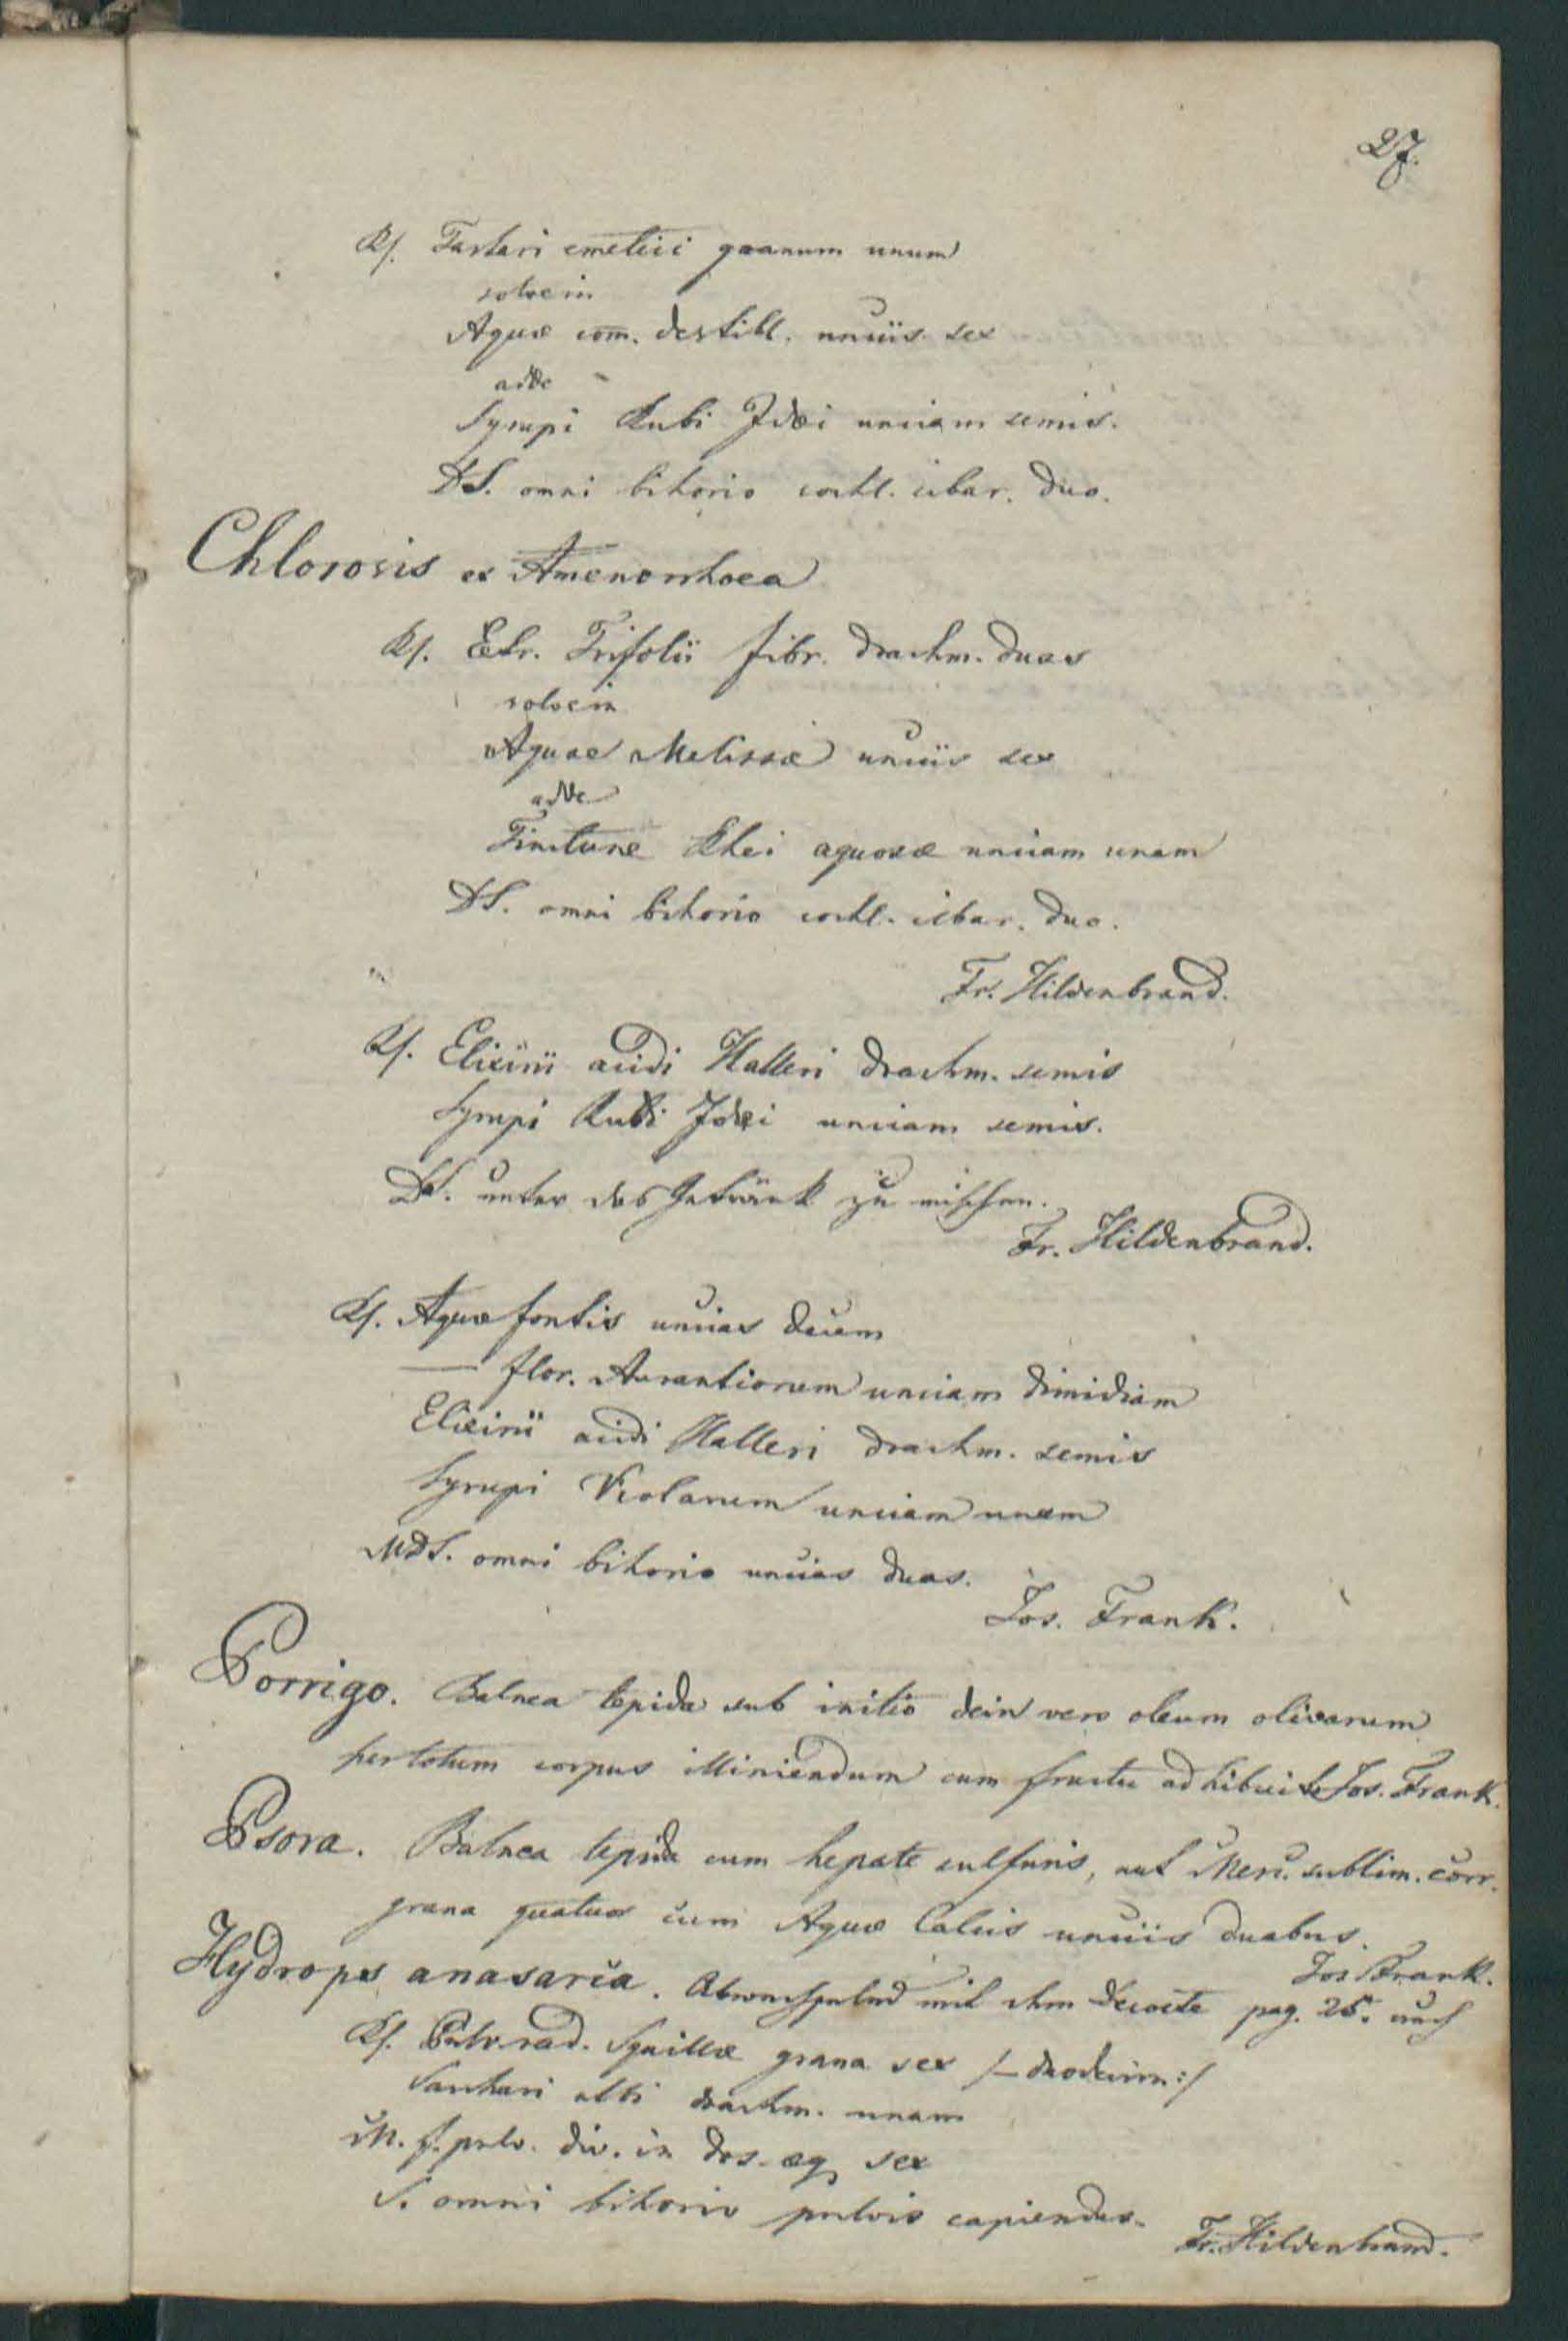 27.
Rf. Tartari emetici granum unum
solve in
Aquæ com. destill. unciis sex
adde
Syrupi Rubi Idæi unciam semis.
DS. omni bihorio cochl. cibar. duo.
Chlorosis ex Amenorrhoea
Rf. Extr. Trifolii fibr. drachm. duas
solve in
Aquae Melissæ unciis sex
adde
Tincturæ Rhei aquosæ unciam unam
DS. omni bihorio cochl. cibar. duo.
Fr. Hildenbrand.
Rf. Elixirii acidi Halleri drachm. semis
Syrupi Rubi Idæi unciam semis.
DS. unter das Getränk zu mischen.
Fr. Hildenbrand.
Rf. Aquæ fontis uncias decem
— flor. Aurantiorum unciam dimidiam
Elixirii acidi Halleri drachm. semis
Syrupi Violarum unciam unam
MDS. omni bihorio uncias duas.
Jos. Frank.
Porrigo. Balnea tepida sub initio dein vero oleum olivarum
per totum corpus illiniendum cum fructu adhibuit Jos. Frank.
Psora. Balnea tepida cum hepate sulfuris, aut Merc. sublim. corr.
grana quatuor cum Aquæ Calcis unciis duabus.
Jos Frank.
Hydrops anasarca. Abwechselnd mit dem Decocte pag. 25. auch
Rf. Pulv. rad. Squillæ grana sex /– duodecim:/
Sacchari albi drachm. unam
M. f. pulv. div. in dos. æq. sex
S. omni bihorio pulvis capiendus.
Fr. Hildenbrand.